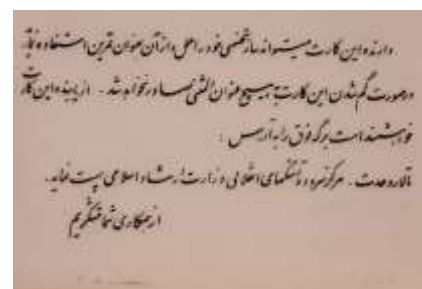 دارنده این کارت میتواند ساز شخصی خود را حمل و از آن بعنوان تمرین استفاده نماید
درصورت گم شدن این کارت بهیچ عنوان المثنی صادر نخواهد شد . از یابنده این کارت
خواهشمند است برگه فوق را به آدرس :
تالار وحدت . مرکز سرود و آهنگهای انقلابی وزارت ارشاد اسلامی پست نماید .
از همکاری شما متشکریم